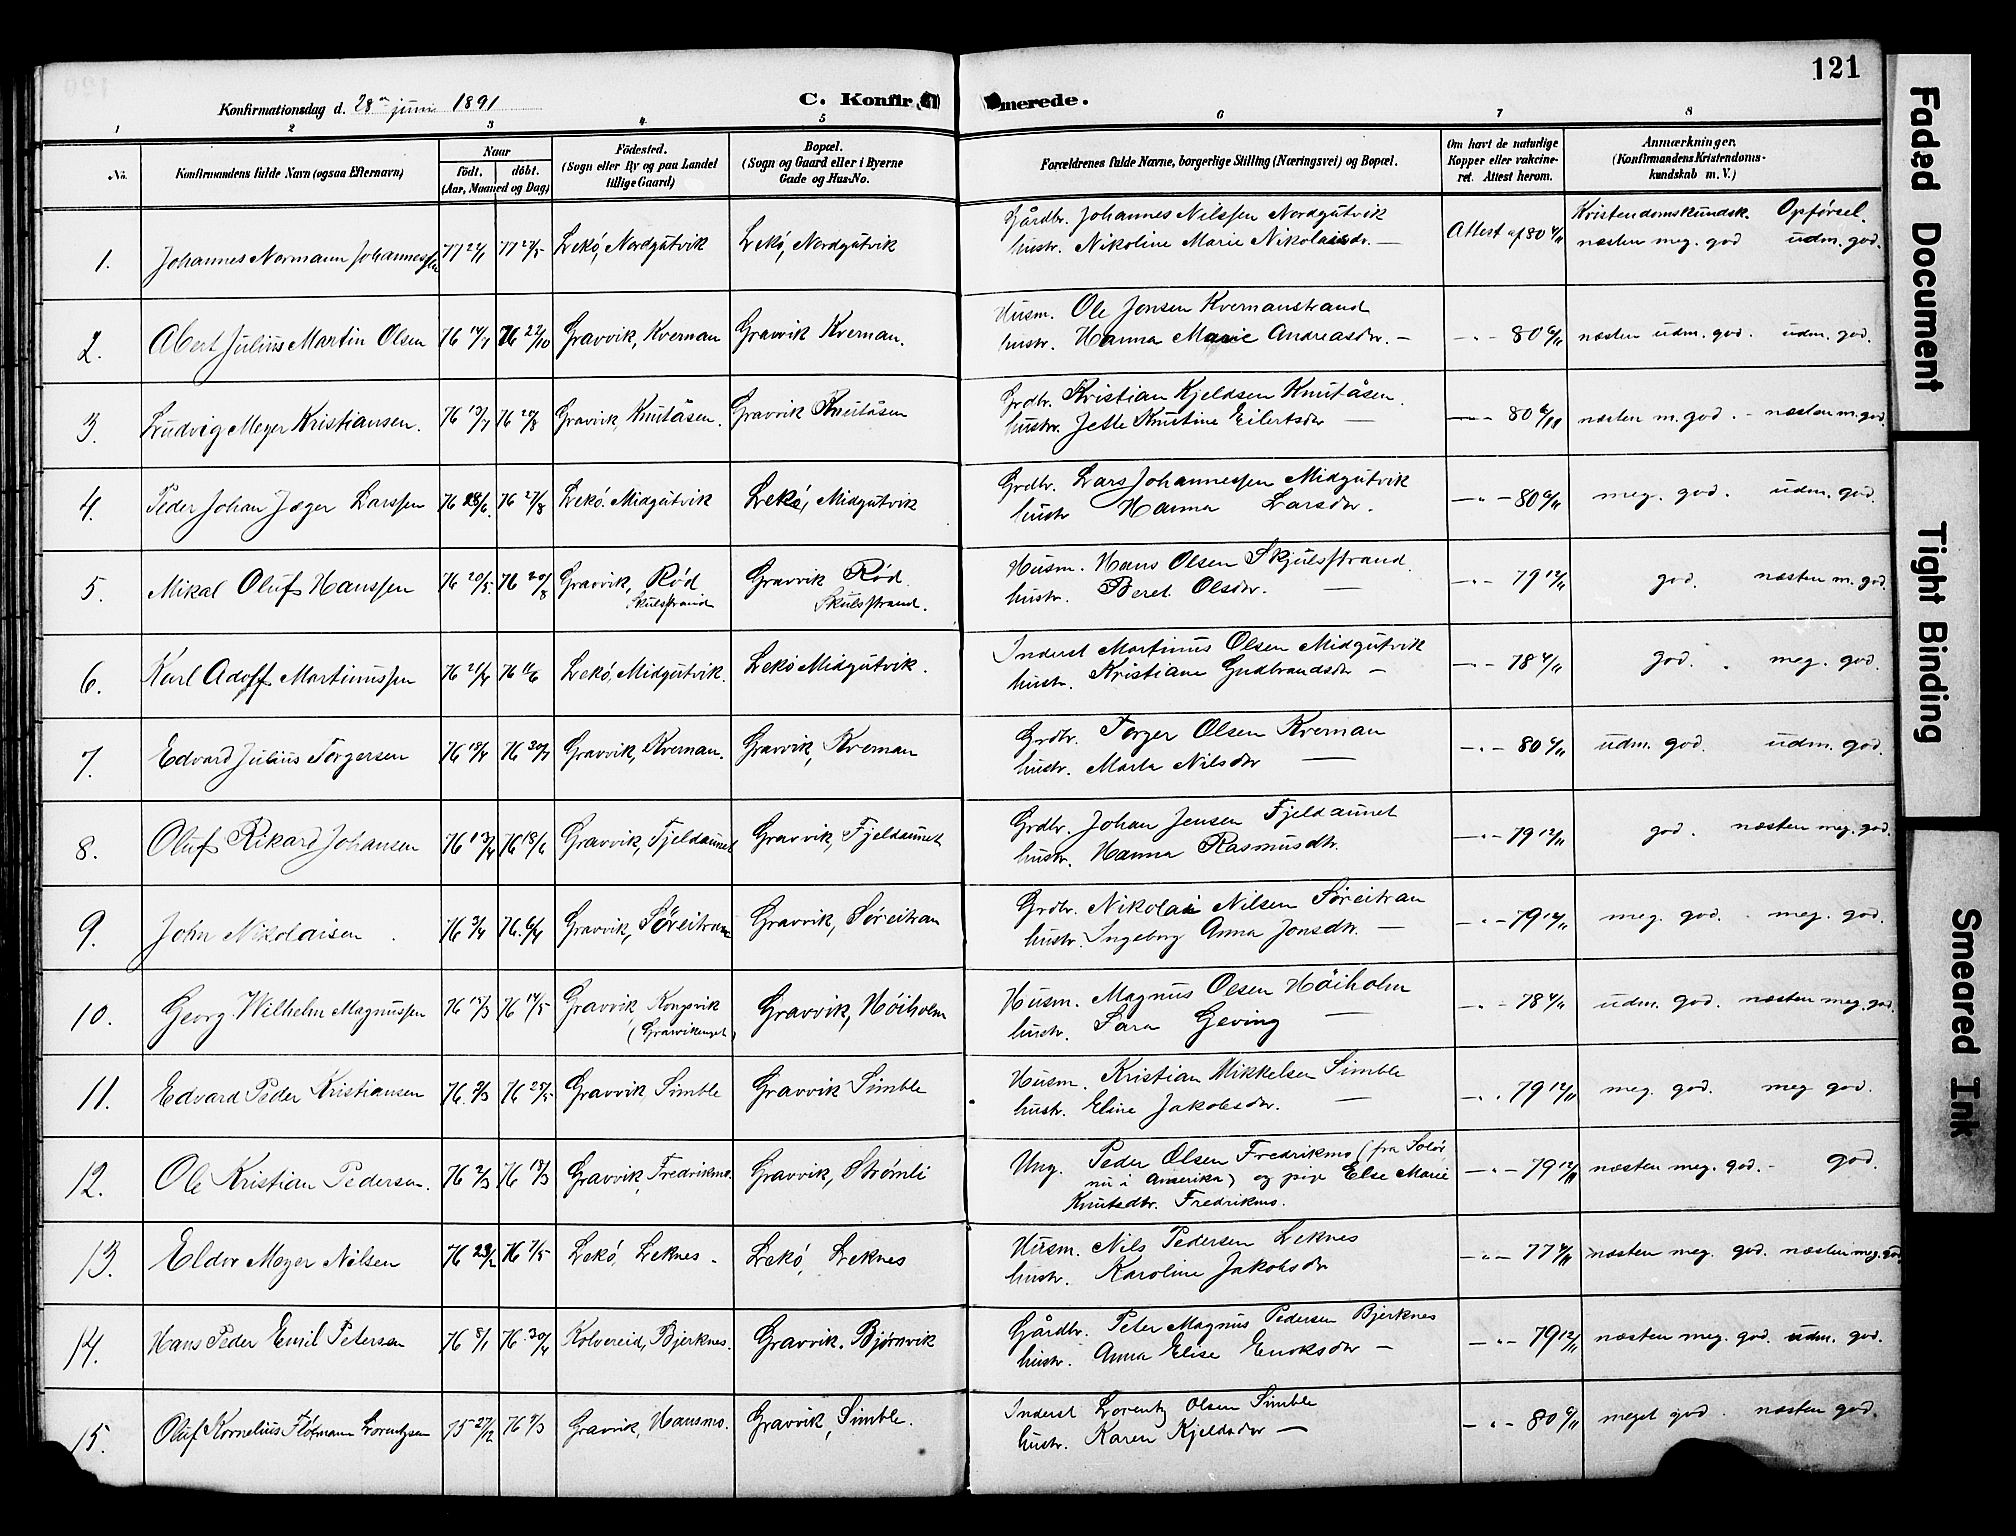 121
Konfirmationsdag d. 28de juni 1891 C. Konfirmerede.
1 2 3 4. 5 6 7 8
No. Konfirmandens fulde Navn (ogsaa Efternavn) Naar født. døbt. (Aar, Maaned og Dag) Fødested. (Sogn eller By og paa Landet tillige Gaard) Bopæl. (Sogn og Gaard eller i Byerne Gade og Hus-No. Forældrenes fulde Navne, borgerlige Stilling (Næringsvei) og Bopæl. Om havt de naturlige Kopper eller vakcineret. Attest herom. Anmærkninger. (Konfirmandens Kristendomskundskab m. V.)
Kristendomskundsk. Opførsel.
1. Johannes Normann Johannessen Lekö, Nordgutvik Lekö, Nordgutvik Gårdbr. Johannes Nilssen Nordgutvik
hustr. Nikoline Marie Nikolaisdr. — Attest af 80 6/11 næsten meg. god udm. god.
2. Abert Julius Martin Olsen 76 22/10 Gravvik, Kvernan Gravvik Kvernan. Husm. Ole Jonsen Kvernanstrand
hustr. Hanna Marie Andreasdr. — —"— 80 6/11 næsten udm. god. udm. god.
3. Ludvig Meyer Kristiansen. 76 13/7 Gravvik, Knutåsen. Gravvik Knutåsen Grdbr. Kristian Kjeldsen Knutåsen.
hustr. Jette Kristine Eilertsdr — —"— 80 6/11 næsten m. god. - næsten m. god.
4. Peder Johan Jæger Larssen 76 28/6. 76 27/8 Lekö. Midgutvik Lekö, Midgutvik Grdbr. Lars Johannessen Midgutvik
hustr Hanna Larsdr. —"— 80 6/11 meg. god. udm. god.
5. Mikal Oluf Hanssen 76 20/5. 76 20/8 Gravvik, Rød Skulsstrand Gravvik Rød. Skulsstrand. Husm. Hans Olsen Skjulsstrand.
hustr. Beret Olsdr. — —"— 79 12/11 god. næsten m. god.
6. Karl Adolf Martinussen 76 11/6 Lekö, Midgutvik. Lekö Midgutvik. Inderst Martinus Olsen Midgutvik
hustr. Kristiane Gudbrandsdr — —"— 78 4/11 god. meg. god.
7. Edvard Julius Torgersen 76 18/4 76 30/7 Gravvik, Kvernan. Gravvik, Kvernan Grdbr. Torger Olsen Kvernan
hustr. Marta Nilsdr — —"— 80 6/11 udm. god. udm. god.
8. Oluf Rikard Johansen 76 13/4 76 18/6 Gravvik, Fjeldaunet Gravvik, Fjeldaunet Grdbr. Johan Jensen Fjeldaunet
hustr. Hanna Rasmusdtr. —"— 79 12/11 god. næsten meg. god.
9. John Nikolaisen 76 3/4 Gravvik, Søreitran Gravvik, Søreitran Grdbr. Nikolai Nilsen Søreitran
hustr. Ingeborg Anna Jonsdtr. — —"— 79 12/11 meg. god. meg. god.
10. Georg Wilhelm Magnussen 76 14/5 Gravvik, Kongsvik (Gravvikenget) Gravvik, Höiholm Husm. Magnus Olsen Höiholm
hustr. Sara Geving — —"— 78 4/11 udm. god. næsten meg. god.
11. Edvard Peder Kristiansen 76 25/5 Gravvik Simble Gravvik Simble Husm. Kristian Mikkelsen Simble
hustr. Eline Jakobsdr. — —"— 79 12/11 meg. god. meg god.
12. Ole Kristian Pedersen. 76 2/3 Gravvik, Fredriksmo. Gravvik, Strømli Ung. Peder Olsen Fredriksmo (fra Solør
nu i Amerika) og pige Else Marie
Knutsdtr. Fredriksmo. —"— 79 12/11 næsten meg. god. - god.
13. Eldor Meyer Nilsen 76 23/2 76 7/5 Lekö, Leknes. Lekö, Leknes Husm. Nils Pedersen Leknes
hustr. Karoline Jakobsdr —"— 77 næsten meg. god. næsten meg. god
14. Hans Peder Emil Petersen 76 8/1 76 30/4 Kolvereid, Bjerknes. Gravvik. Bjørnvik Gårdbr. Peter Magnus Pedersen Bjerknes
hustr. Anna Elise Eriksdr — —"— 79 12/11 næsten meg. god. udm. god.
15. Oluf Kornelius Flötmann Lorentsen 75 27/12 Gravvik, Hansmo. Gravvik, Simble. Inderst Lorentz Olsen Simble
hustr. Karen Kjeldsdr — —"— 80 6/11 meget god næsten god.
Faded Document
Tight Binding
Smeared Ink